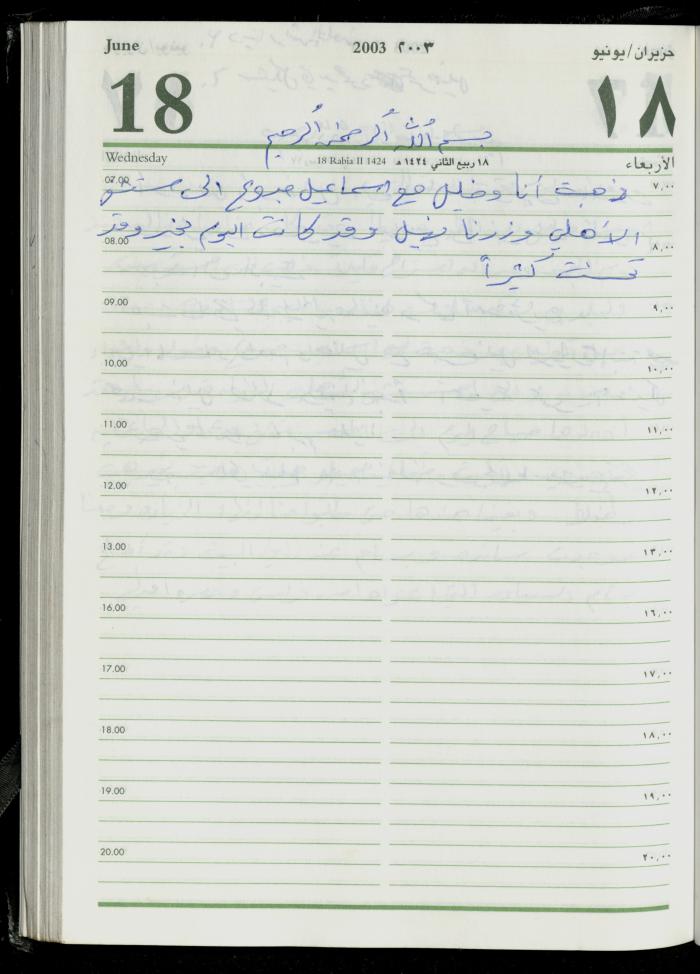 June 2003 ٢٠٠٣ حزيران/يونيو
18 ١٨
بسم الله الرحمن الرحيم
Wednesday 18 Rabia II 1424 ١٨ ربيع الثاني ١٤٢٤ هـ الأربعاء
07.00 ٧,٠٠
ذهبت أنا وخليل مع اسماعيل جبوع الى مستشفى
الأهلي وزرنا نهيل وقد كانت اليوم بخير وقد
08.00 ٨,٠٠
تحسنت كثيراً
09.00 ٩,٠٠
10.00 ١٠,٠٠
11.00 ١١,٠٠
12.00 ١٢,٠٠
13.00 ١٣,٠٠
16.00 ١٦,٠٠
17.00 ١٧,٠٠
18.00 ١٨,٠٠
19.00 ١٩,٠٠
20.00 ٢٠,٠٠